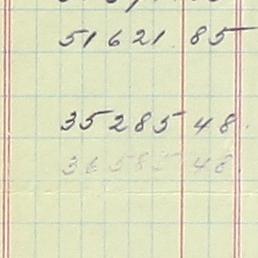 51621 85
35285 48
36585 48